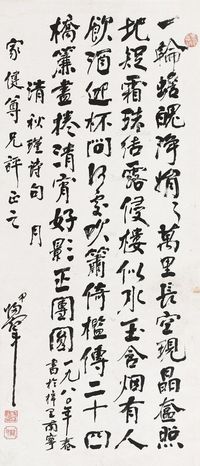 一輪蟾魄淨娟々萬里長空現晶奩照
地疑霜珠結露侵樓似水玉含烟有人
飲酒迎杯問何處吹簫倚檻傳二十四
橋簾盡捲清宵好影正團圓
一九八〇年春
書於南寧
清秋瑾詩句月
家健尊兄評正之